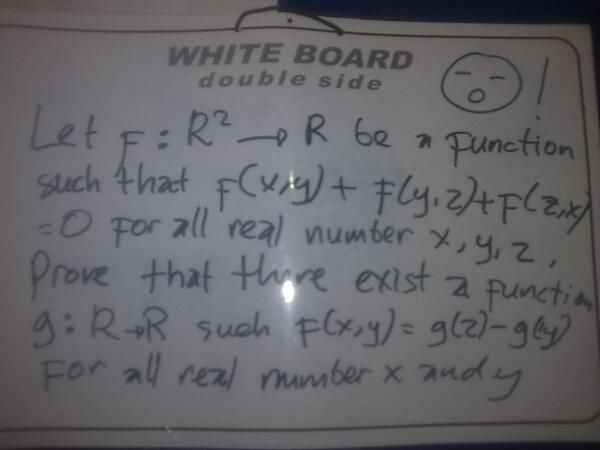 WHITE BOARD
double side
!
Let F : R² → R be a function
such that F(x,y) + F(y,z)+F(z,x)
=0 for all real number x, y, z,
Prove that there exist a function
g : R→R such F(x,y) = g(z)-g(y)
For all real number x and y